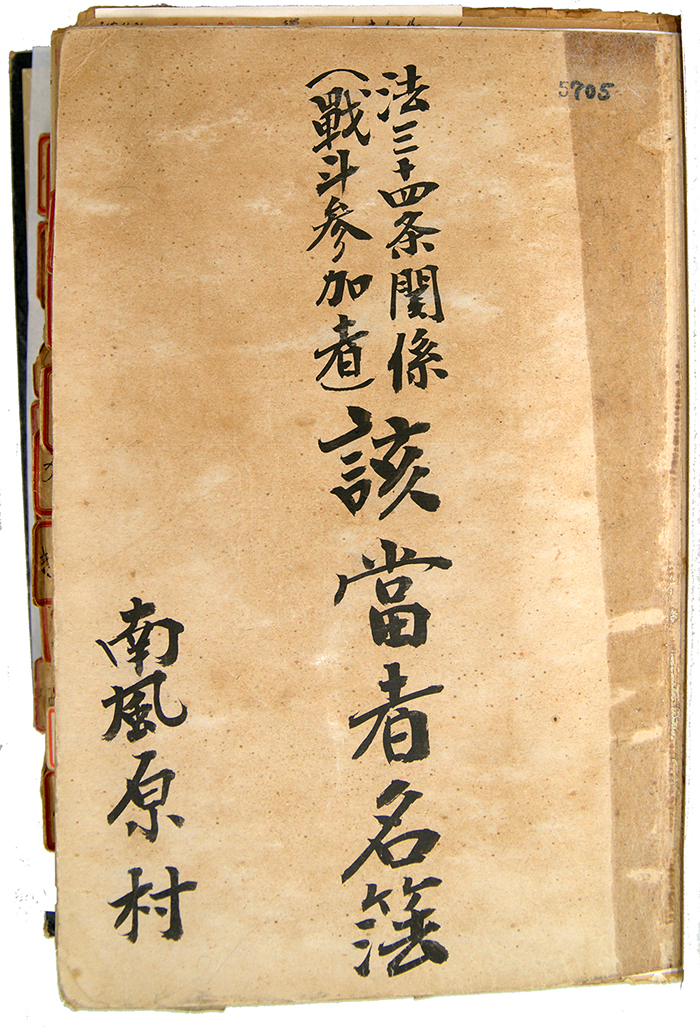 5705
法三十四条関係
(戰斗参加者)
該當者名簿
南風原村